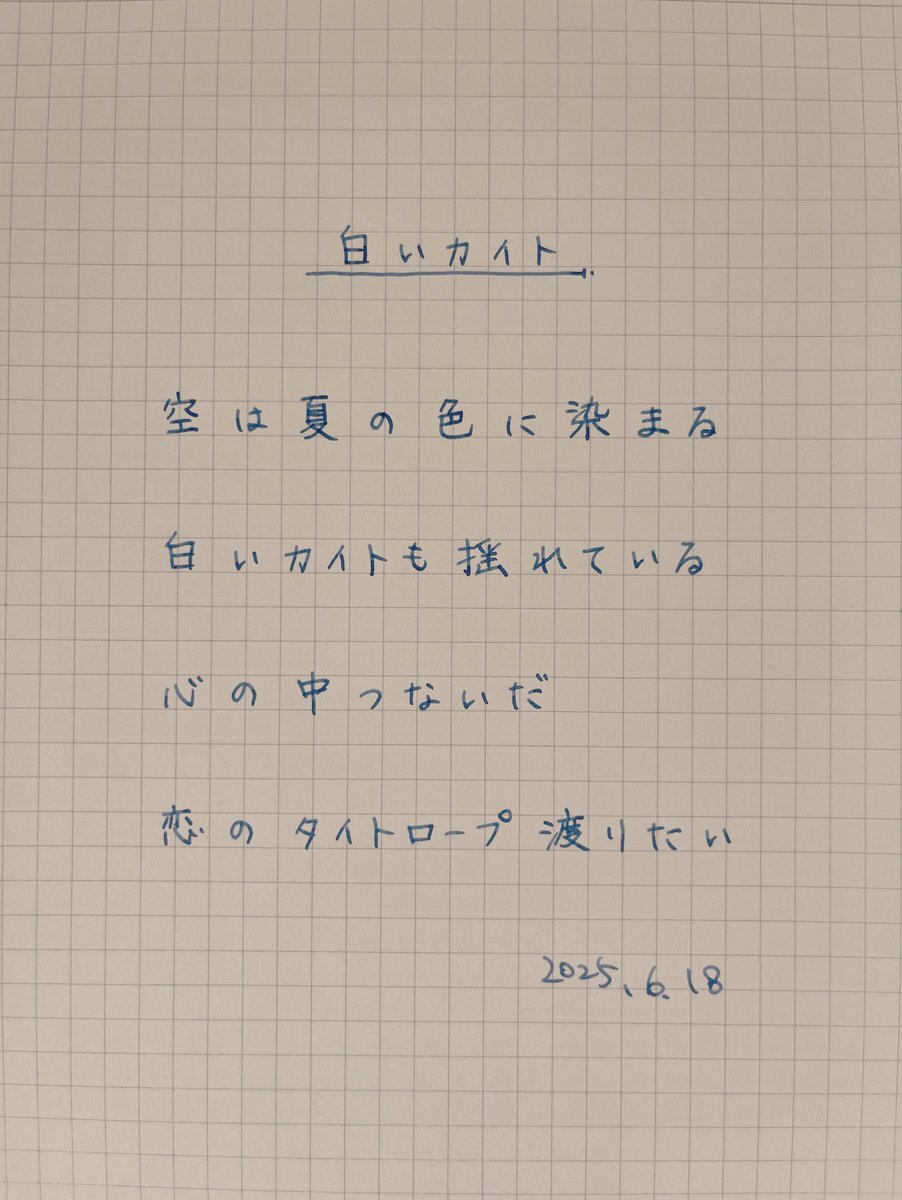 白いカイト
空は夏の色に染まる
白いカイトも揺れている
心の中つないだ
恋のタイトロープ渡りたい
2025.6.18